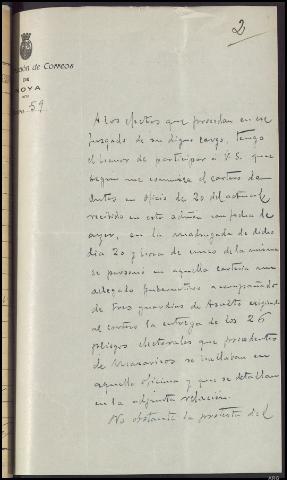 2
de Correos
DE
NOYA
59
A los efectos que procedan en ese
Juzgado de su digno cargo, tengo
el honor de participar a V.S. que
segun me comunica el cartero de
Dutes en oficio de 20 del actual
recibido en esta admon con fecha de
ayer, en la madrugada de dicho
dia 20 y hora de cinco de la misma
se personó en aquella cartería un
delegado gubernativo acompañado
de tres guardias de Asalto exigiendo
al cartero la entrega de los 26
pliegos electorales que procedentes
de Mazaricos se hallaban en
aquella oficina y que se detallan
en la adjunta relación.
No obstante la protesta del